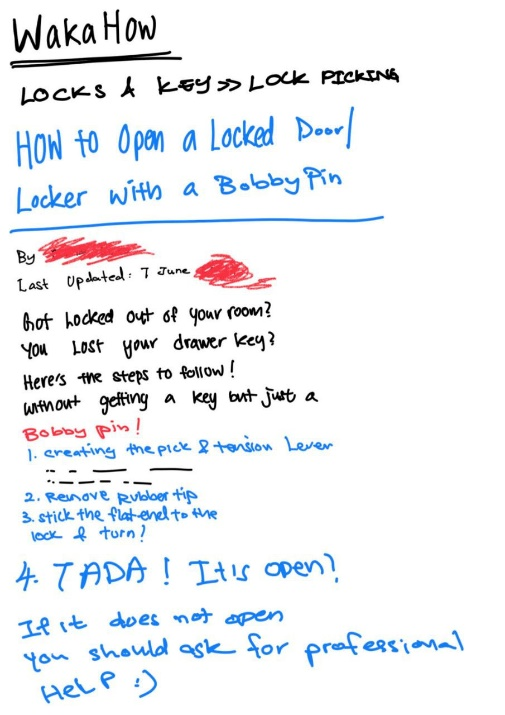 WakaHow
LOCKS & KEY >> LOCK PICKING
HOW to Open a Locked Door/
Locker with a Bobby Pin
By
Last Updated: 7 June
Got Locked out of your room?
You Lost your drawer key?
Here's the steps to follow!
without getting a key but just a
Bobby pin!
1. creating the pick & tension Lever
2. Remove Rubber tip
3. stick the flat end to the
lock & turn!
4. TADA! It is open?
If it does not open
you should ask for professional
HeLP :)